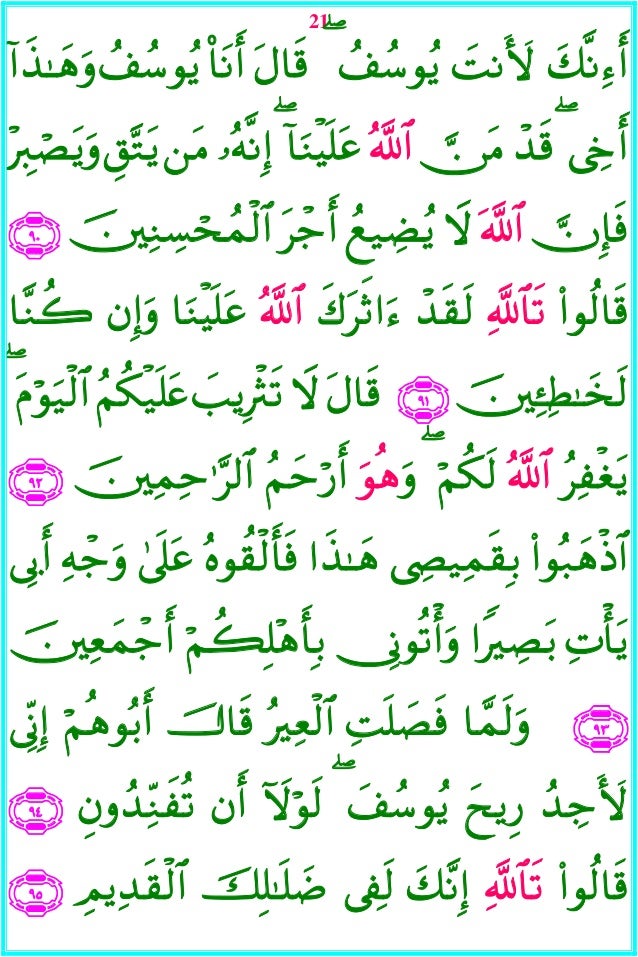 21
أَءِنَّكَ لَأَنتَ يُوسُفُ ۖ قَالَ أَنَا۠ يُوسُفُ وَهَـٰذَآ
أَخِى ۖ قَدْ مَنَّ ٱللَّهُ عَلَيْنَآ ۖ إِنَّهُۥ مَن يَتَّقِ وَيَصْبِرْ
فَإِنَّ ٱللَّهَ لَا يُضِيعُ أَجْرَ ٱلْمُحْسِنِينَ ٩٠
قَالُوا۟ تَٱللَّهِ لَقَدْ ءَاثَرَكَ ٱللَّهُ عَلَيْنَا وَإِن كُنَّا
لَخَـٰطِـِٔينَ ٩١ قَالَ لَا تَثْرِيبَ عَلَيْكُمُ ٱلْيَوْمَ ۖ
يَغْفِرُ ٱللَّهُ لَكُمْ ۖ وَهُوَ أَرْحَمُ ٱلرَّٰحِمِينَ ٩٢
ٱذْهَبُوا۟ بِقَمِيصِى هَـٰذَا فَأَلْقُوهُ عَلَىٰ وَجْهِ أَبِى
يَأْتِ بَصِيرًا وَأْتُونِى بِأَهْلِكُمْ أَجْمَعِينَ
٩٣ وَلَمَّا فَصَلَتِ ٱلْعِيرُ قَالَ أَبُوهُمْ إِنِّى
لَأَجِدُ رِيحَ يُوسُفَ ۖ لَوْلَآ أَن تُفَنِّدُونِ ٩٤
قَالُوا۟ تَٱللَّهِ إِنَّكَ لَفِى ضَلَـٰلِكَ ٱلْقَدِيمِ ٩٥